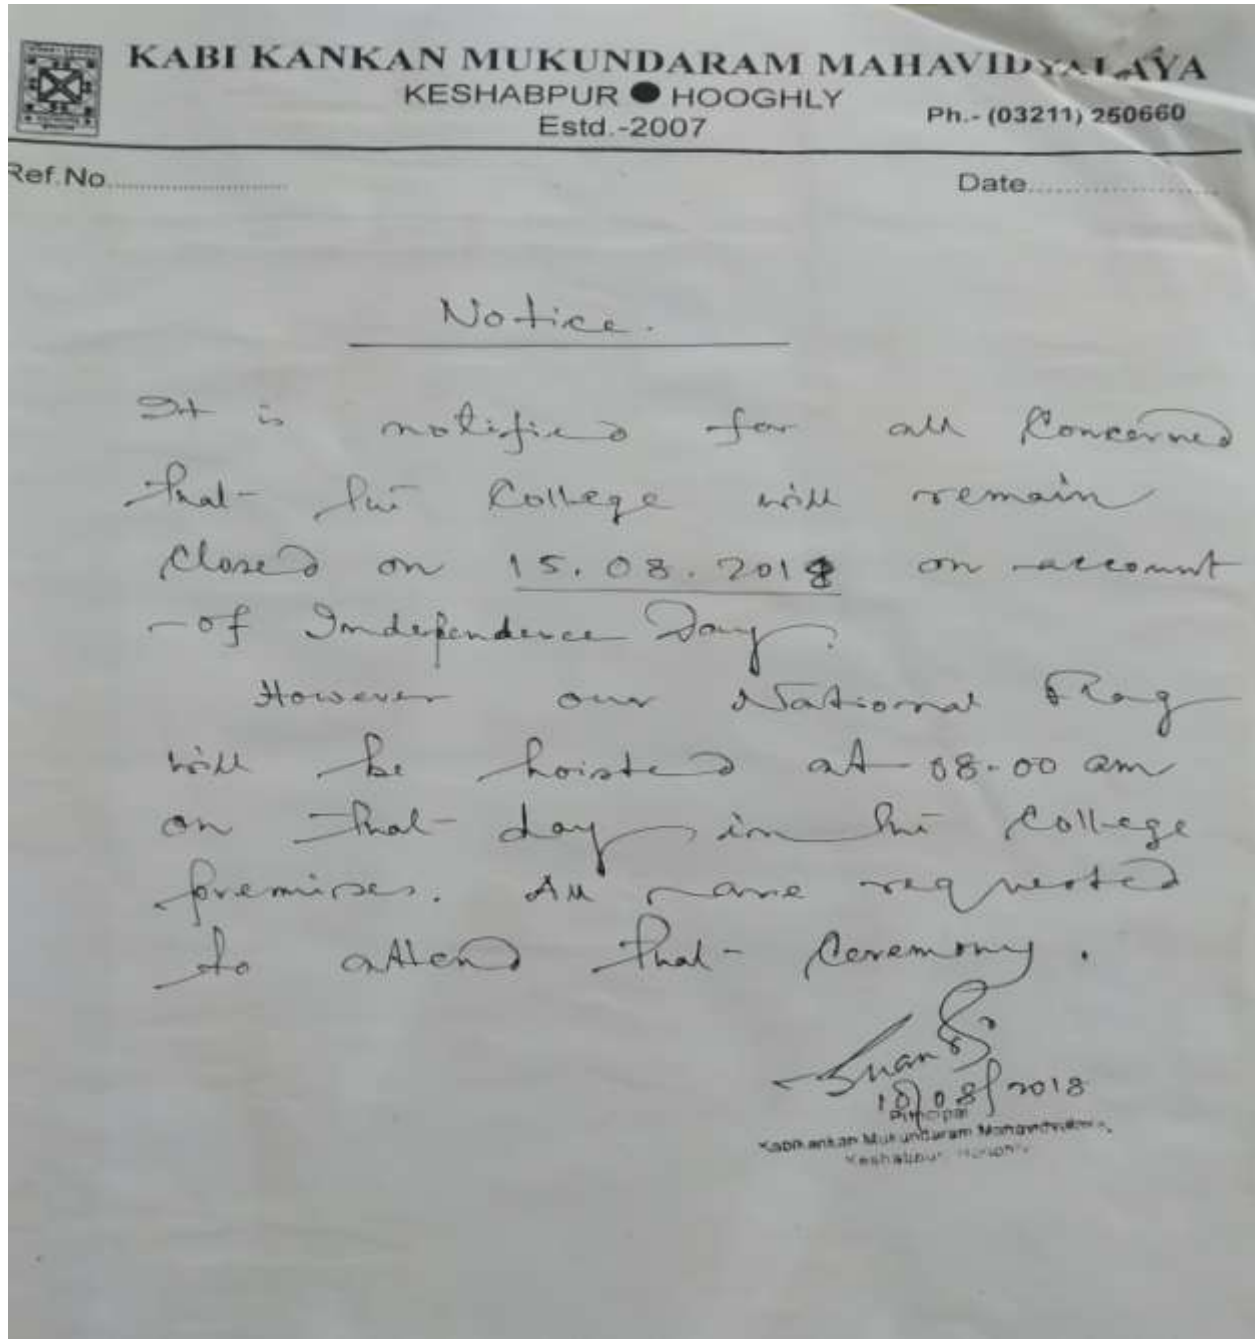 KABI KANKAN MUKUNDARAM MAHAVIDYALAYA
KESHABPUR ● HOOGHLY
Ph.- (03211) 250660
Estd.-2007
Ref.No..............................
Date........................
Notice.
It is notified for all Concerned
that the College will remain
Closed on 15.08.2018 on account
of Independence Day.
However our National Flag
will be hoisted at 08.00 am
on that day in the College
premises. All are requested
to attend that Ceremony.
08/2018
Principal
Kabikankan Mukundaram Mahavidyalaya
Keshabpur, Hooghly